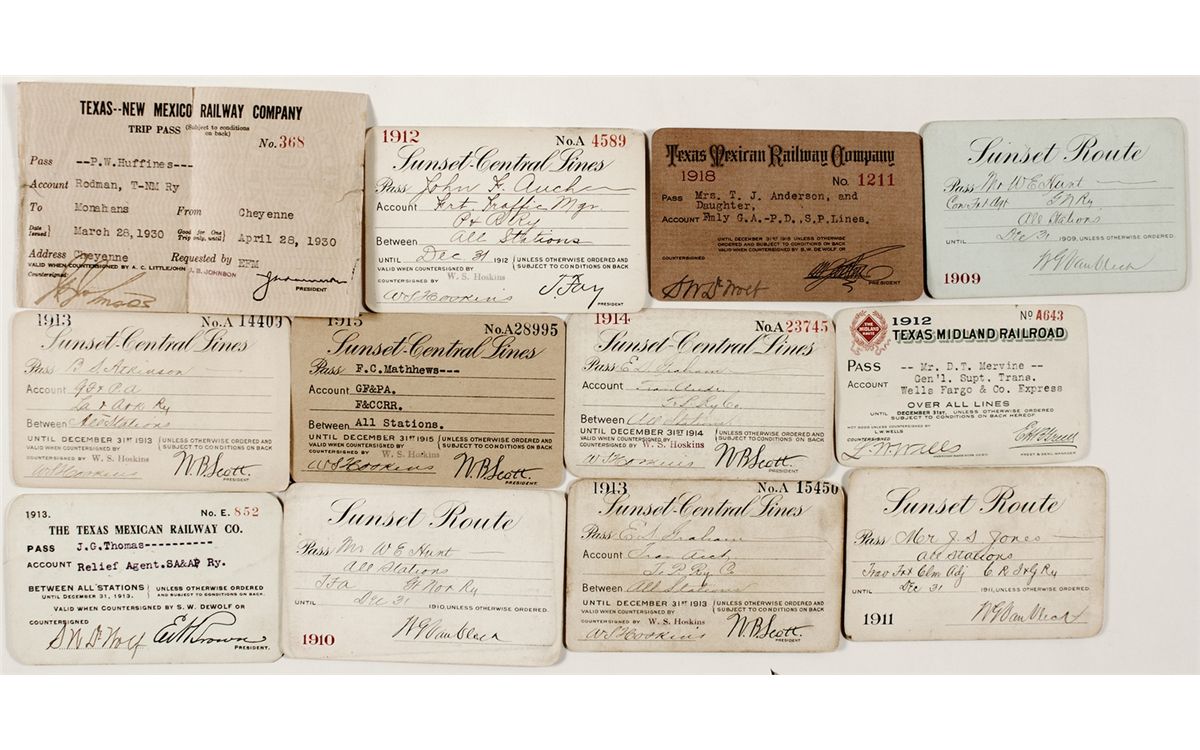 TEXAS--NEW MEXICO RAILWAY COMPANY
TRIP PASS (Subject to conditions on back)
No. 368
Pass --P.W.Huffines---
Account Rodman, T-NM Ry
To Monahans From Cheyenne
Date Issued} March 28,1930 Good for One Trip only, until} April 28, 1930
Address Cheyenne Requested by EFM
VALID WHEN COUNTERSIGNED BY A. C. LITTLEJOHN J. B. JOHNSON
Countersigned:
PRESIDENT
1912 No.A 4589
Sunset-Central Lines
Pass John F. Auch
Account Frt Traffic Mgr
P & R Ry
Between All Stations
UNTIL Dec 31 1912 {UNLESS OTHERWISE ORDERED AND SUBJECT TO CONDITIONS ON BACK
VALID WHEN COUNTERSIGNED BY W. S. Hoskins
W S Hoskins J. Fay
PRESIDENT
Texas Mexican Railway Company
1918 No. 1211
PASS Mrs. T. J. Anderson, and
Daughter,
ACCOUNT Fmly G.A.-P.D., S.P.Lines.
UNTIL DECEMBER 31ST 1918 UNLESS OTHERWISE
ORDERED AND SUBJECT TO CONDITIONS ON BACK
VALID WHEN COUNTERSIGNED BY S.W. DE WOLF OR
COUNTERSIGNED
S W De Wolf
PRESIDENT
Sunset Route
Pass Mr W E Hunt
Com Frt Agt G N Ry
All Stations
UNTIL Dec 31 1909, UNLESS OTHERWISE ORDERED
1909 W G Van Vleck
1913 No.A 14403
Sunset-Central Lines
Pass B S Atkinson
Account G F & P A
La & Ark Ry
Between All Stations
UNTIL DECEMBER 31ST 1913 {UNLESS OTHERWISE ORDERED AND SUBJECT TO CONDITIONS ON BACK
VALID WHEN COUNTERSIGNED BY W. S. Hoskins
W S Hoskins N.B. Scott.
PRESIDENT
1915 No.A28995
Sunset-Central Lines
Pass F.C.Mathhews---
Account GF&PA.
F&CCRR.
Between All Stations.
UNTIL DECEMBER 31ST 1915 {UNLESS OTHERWISE ORDERED AND SUBJECT TO CONDITIONS ON BACK
VALID WHEN COUNTERSIGNED BY W. S. Hoskins
W S Hoskins N.B. Scott.
PRESIDENT.
1914 No.A23745
Sunset-Central Lines
Pass E L Graham
Account Tran Audr
Between All Stations
UNTIL DECEMBER 31ST 1914 {UNLESS OTHERWISE ORDERED AND SUBJECT TO CONDITIONS ON BACK
VALID WHEN COUNTERSIGNED BY W. S. Hoskins
W S Hoskins N.B. Scott.
PRESIDENT
THE MIDLAND ROUTE
1912 No A643
TEXAS MIDLAND RAILROAD
PASS -- Mr. D.T. Mervine --
ACCOUNT Gen'l. Supt. Trans.
Wells Fargo & Co. Express
OVER ALL LINES
UNTIL DECEMBER 31ST. UNLESS OTHERWISE ORDERED
SUBJECT TO CONDITIONS ON BACK HEREOF
NOT GOOD UNLESS COUNTERSIGNED BY
L.W.WELLS
COUNTERSIGNED
L. W. Wells E H R Green
PREST & GENL MANAGER
1913. No. E. 852
THE TEXAS MEXICAN RAILWAY CO.
PASS J.G.Thomas----------
ACCOUNT Relief Agent.SA&AP Ry.
BETWEEN ALL STATIONS
UNTIL DECEMBER 31, 1913. UNLESS OTHERWISE ORDERED AND SUBJECT TO CONDITIONS ON BACK.
VALID WHEN COUNTERSIGNED BY S. W. DEWOLF OR
COUNTERSIGNED
S W De Wolf E H Brown
PRESIDENT.
Sunset Route
Pass Mr W E Hunt
All Stations
T F A Ft Wor Ry
UNTIL Dec 31 1910, UNLESS OTHERWISE ORDERED.
1910 W G Van Vleck
1913 No.A 15450
Sunset-Central Lines
Pass E L Graham
Account Tran Audr
Between All Stations
UNTIL DECEMBER 31ST 1913 {UNLESS OTHERWISE ORDERED AND SUBJECT TO CONDITIONS ON BACK
VALID WHEN COUNTERSIGNED BY W. S. Hoskins
W S Hoskins N.B. Scott.
PRESIDENT
Sunset Route
Pass Mr J S Jones
All Stations
Trav Frt Clm Adj C R I & G Ry
UNTIL Dec 31 1911, UNLESS OTHERWISE ORDERED
1911 W G Van Vleck